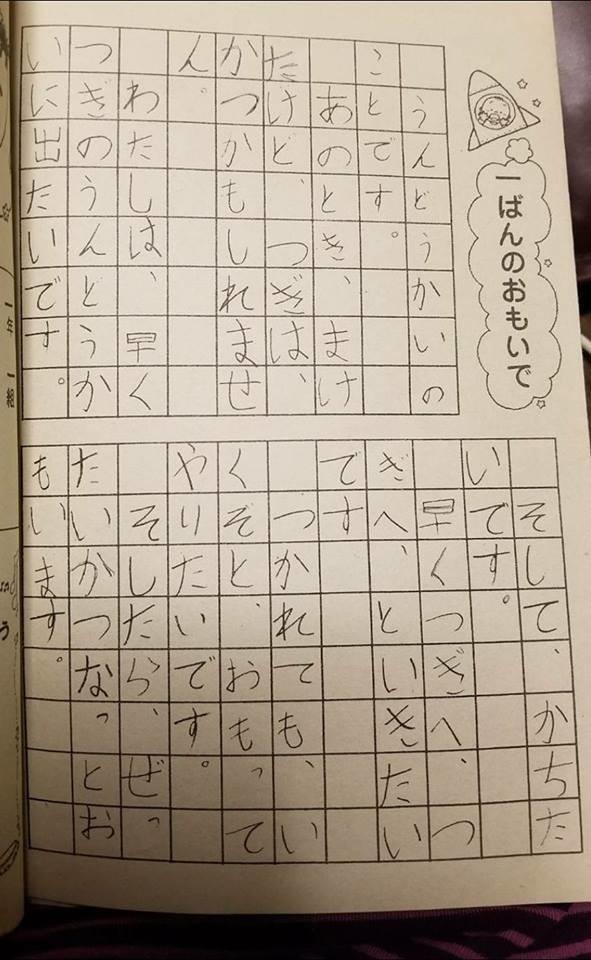 一ばんのおもいで
うんどうかいの
ことです。
あのとき、まけ
たけど、つぎは、
かつかもしれませ
ん。
わたしは、早く
つぎのうんどうか
いに出たいです。
そして、かちた
いです。
早くつぎへ、つ
ぎへ、といきたい
です
つかれても、い
くぞと、おもって
やりたいです。
そしたら、ぜっ
たいかつなっとお
もいます。
一年 一組